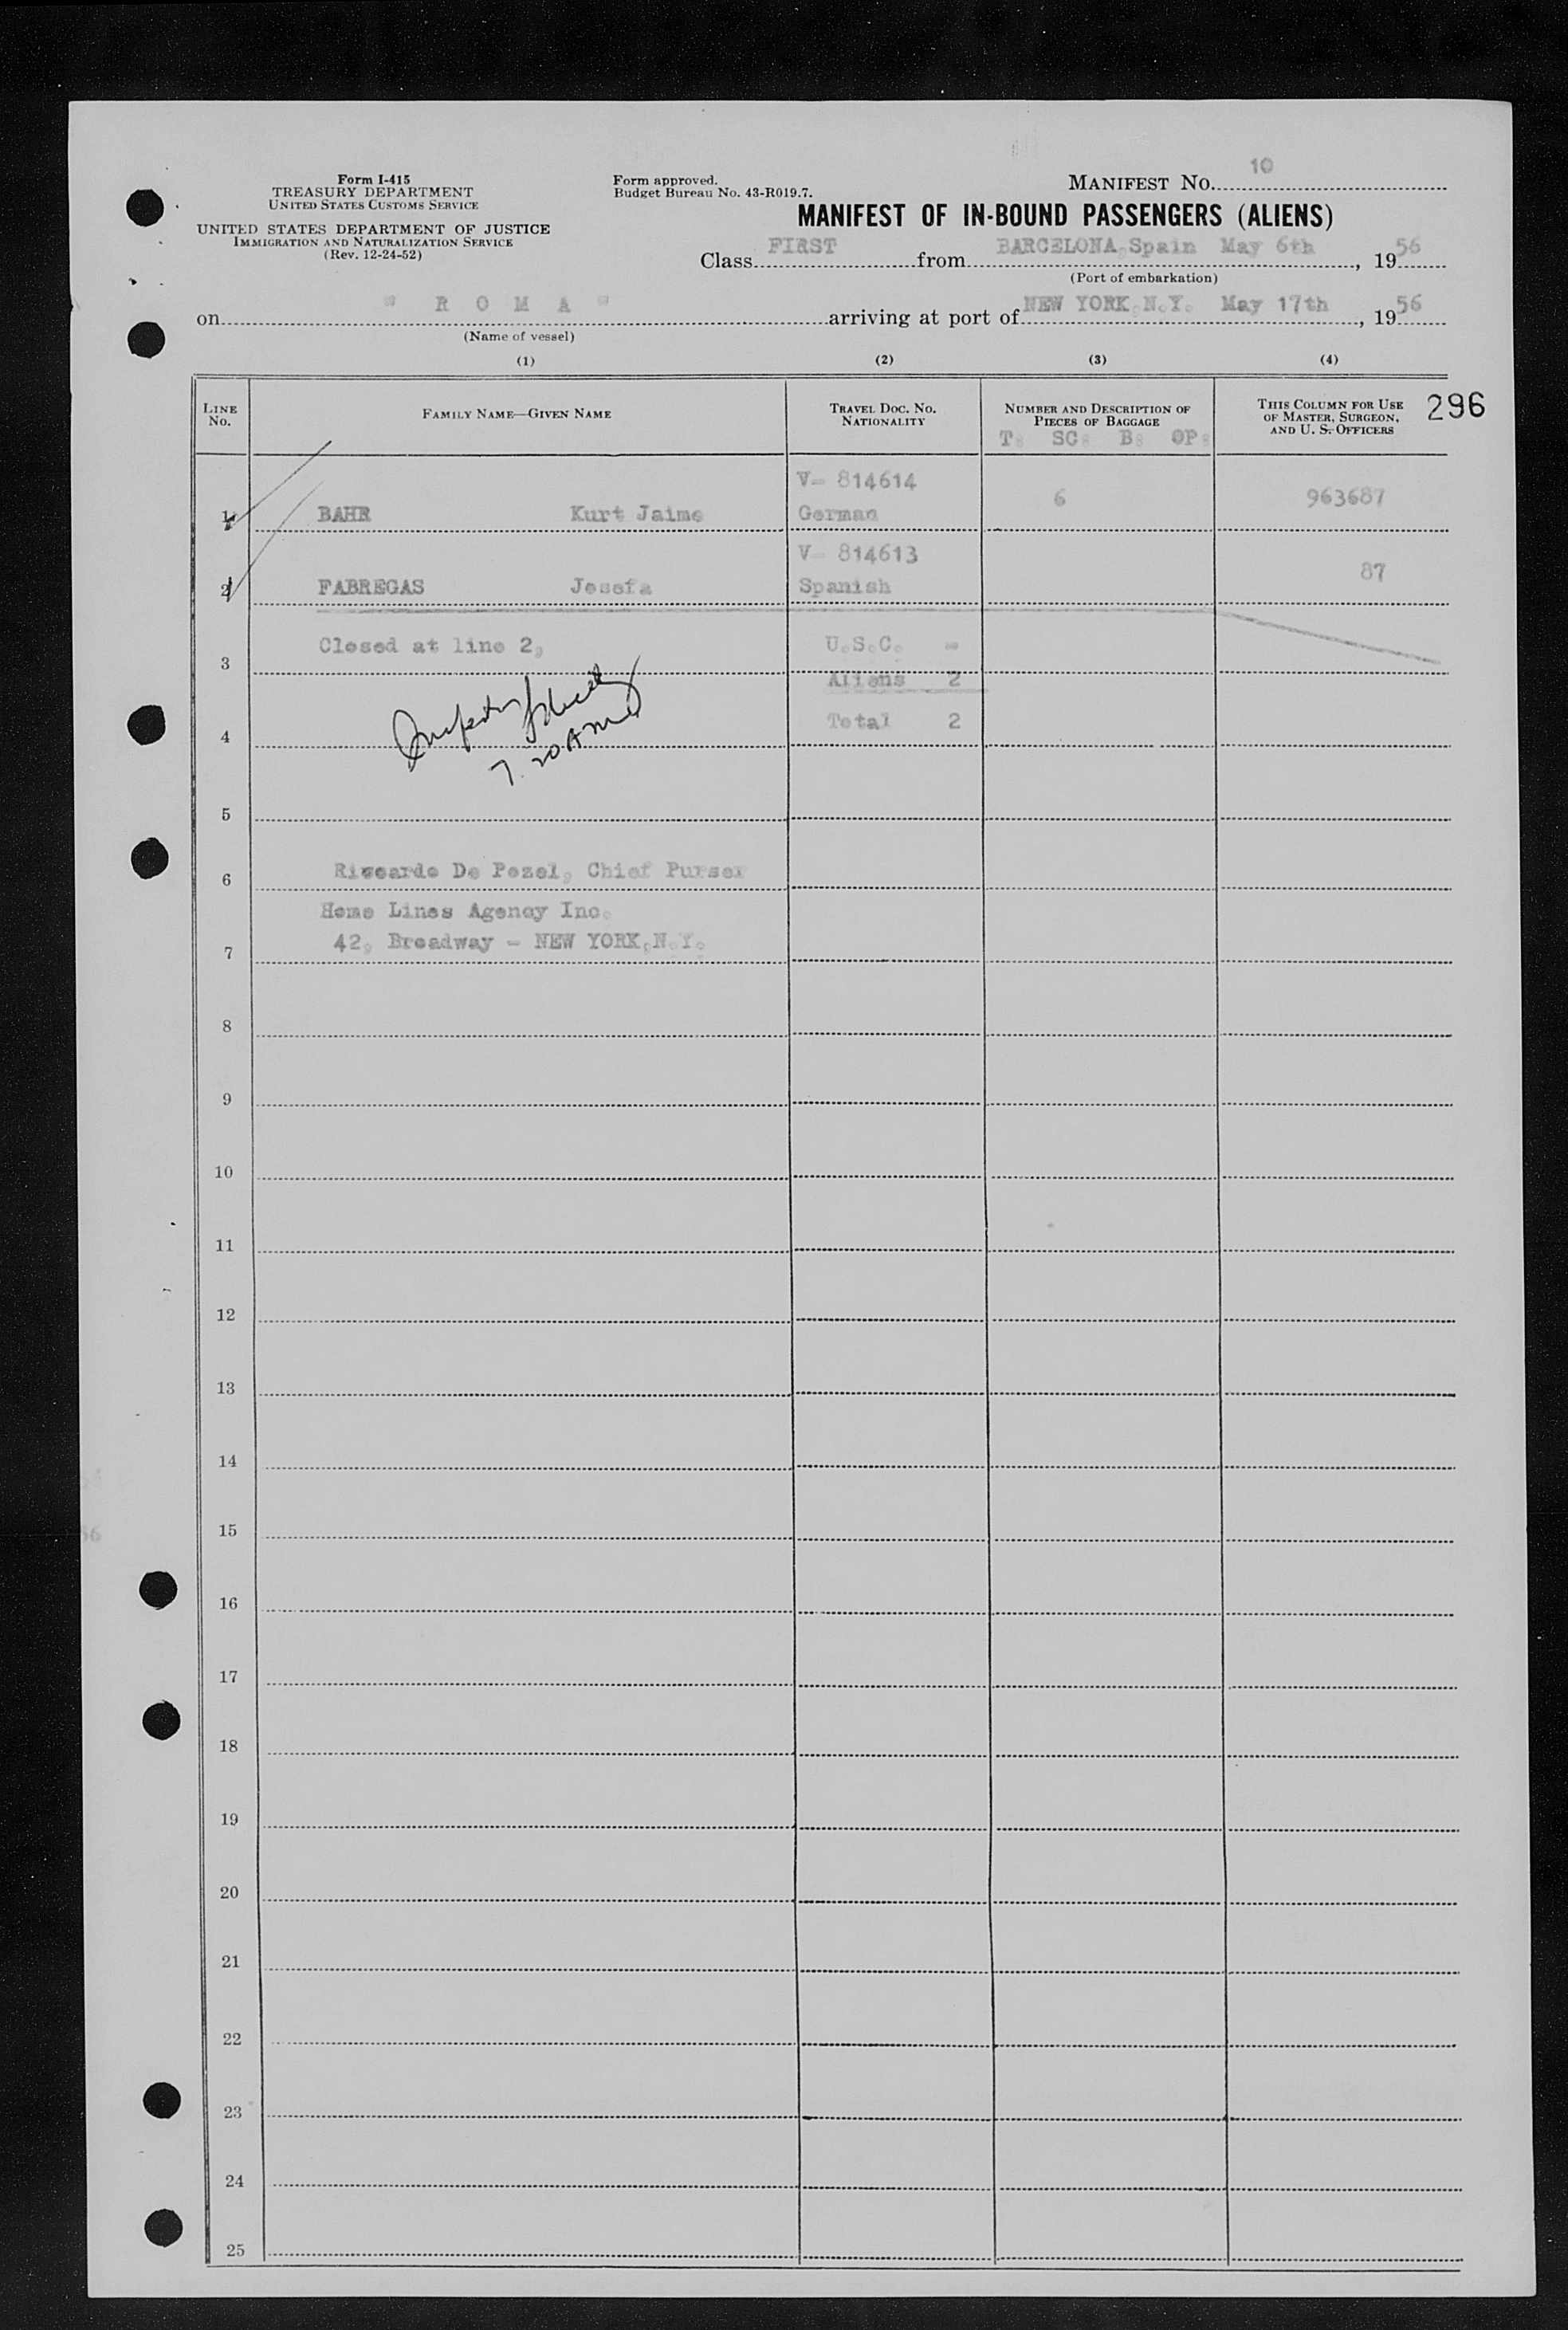 10
Form I-415
TREASURY DEPARTMENT
UNITED STATES CUSTOMS SERVICE
UNITED STATES DEPARTMENT OF JUSTICE
IMMIGRATION AND NATURALIZATION SERVICE
(Rev. 12-24-52)
Form approved.
Budget Bureau No. 43-R019.7.
MANIFEST NO.
MANIFEST OF IN-BOUND PASSENGERS (ALIENS)
Class FIRST from BARCELONA, Spain May 6th, 1956
(Port of embarkation)
on " R O M A " arriving at port of NEW YORK, N.Y. May 17th, 1956
(Name of vessel)
(1) (2) (3) (4)
LINE NO. FAMILY NAME—GIVEN NAME TRAVEL DOC. NO. NATIONALITY NUMBER AND DESCRIPTION OF PIECES OF BAGGAGE THIS COLUMN FOR USE OF MASTER, SURGEON, AND U. S. OFFICERS 296
T: SC: B: OP:
V- 814614
1 BAHR Kurt Jaime German 6 963687
V- 814613
2 FABREGAS Josefa Spanish 87
Closed at line 2, U.S.C. -
3
Aliens 2
4 Total 2
7.20 AM
5
6 Riccardo De Pozel, Chief Purser
Home Lines Agency Inc.
7 42, Broadway - NEW YORK, N.Y.
8
9
10
11
12
13
14
15
16
17
18
19
20
21
22
23
24
25